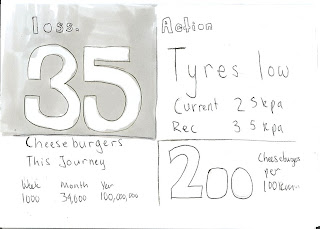 loss.
35
Cheeseburgers
This Journey
Week Month Year
1000 34,000 100,000,000
Action
Tyres low
Current 25kpa
Rec 35kpa
200
Cheeseburges
per